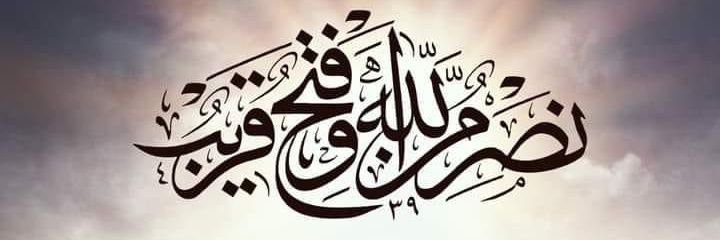 نَصْرٌ مِّنَ اللَّهِ وَفَتْحٌ قَرِيبٌ
٣٩